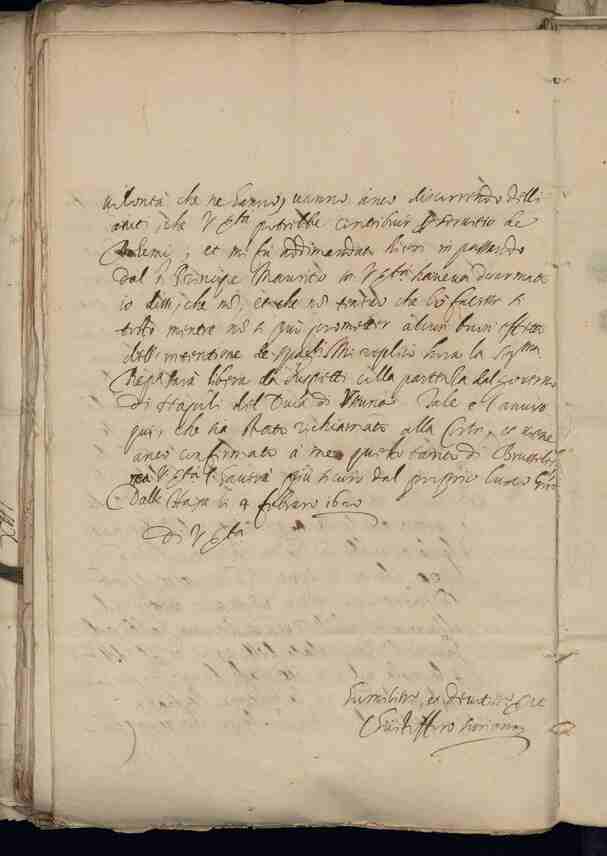 volontà che ne hanno, vanno anco discorrendo delli
aiuti, che V. Ser.tà potrebbe contribuir per servitio de
Bohemi; et mi fu addimandato hieri in passando
dal s.r Principe Mauritio se V. Ser.tà haveva disarmato
io dissi, che nò, et che nò credevo che lo facesse si
tosto mentre nò si può prometter alcun buon effetto
dell'intentione de Spagnoli. Mi replicò hora la Ser.ma
Rep.ca sarà libera da sospetti colla partenza dal governo
di Napoli del Duca di Ossuna. Tale è l'aviso
qui, che sia stato richiamato alla Corte, et viene
anco confirmato à me questo tanto di Bruselles
mà V. Ser.tà l'haverà più sicuro dal proprio luoco. Gratie
Dall' Haya li 4 febraro 1620
Di V. Ser.tà
humiliss.o et devotiss.o ser.re
Christofforo Suriano